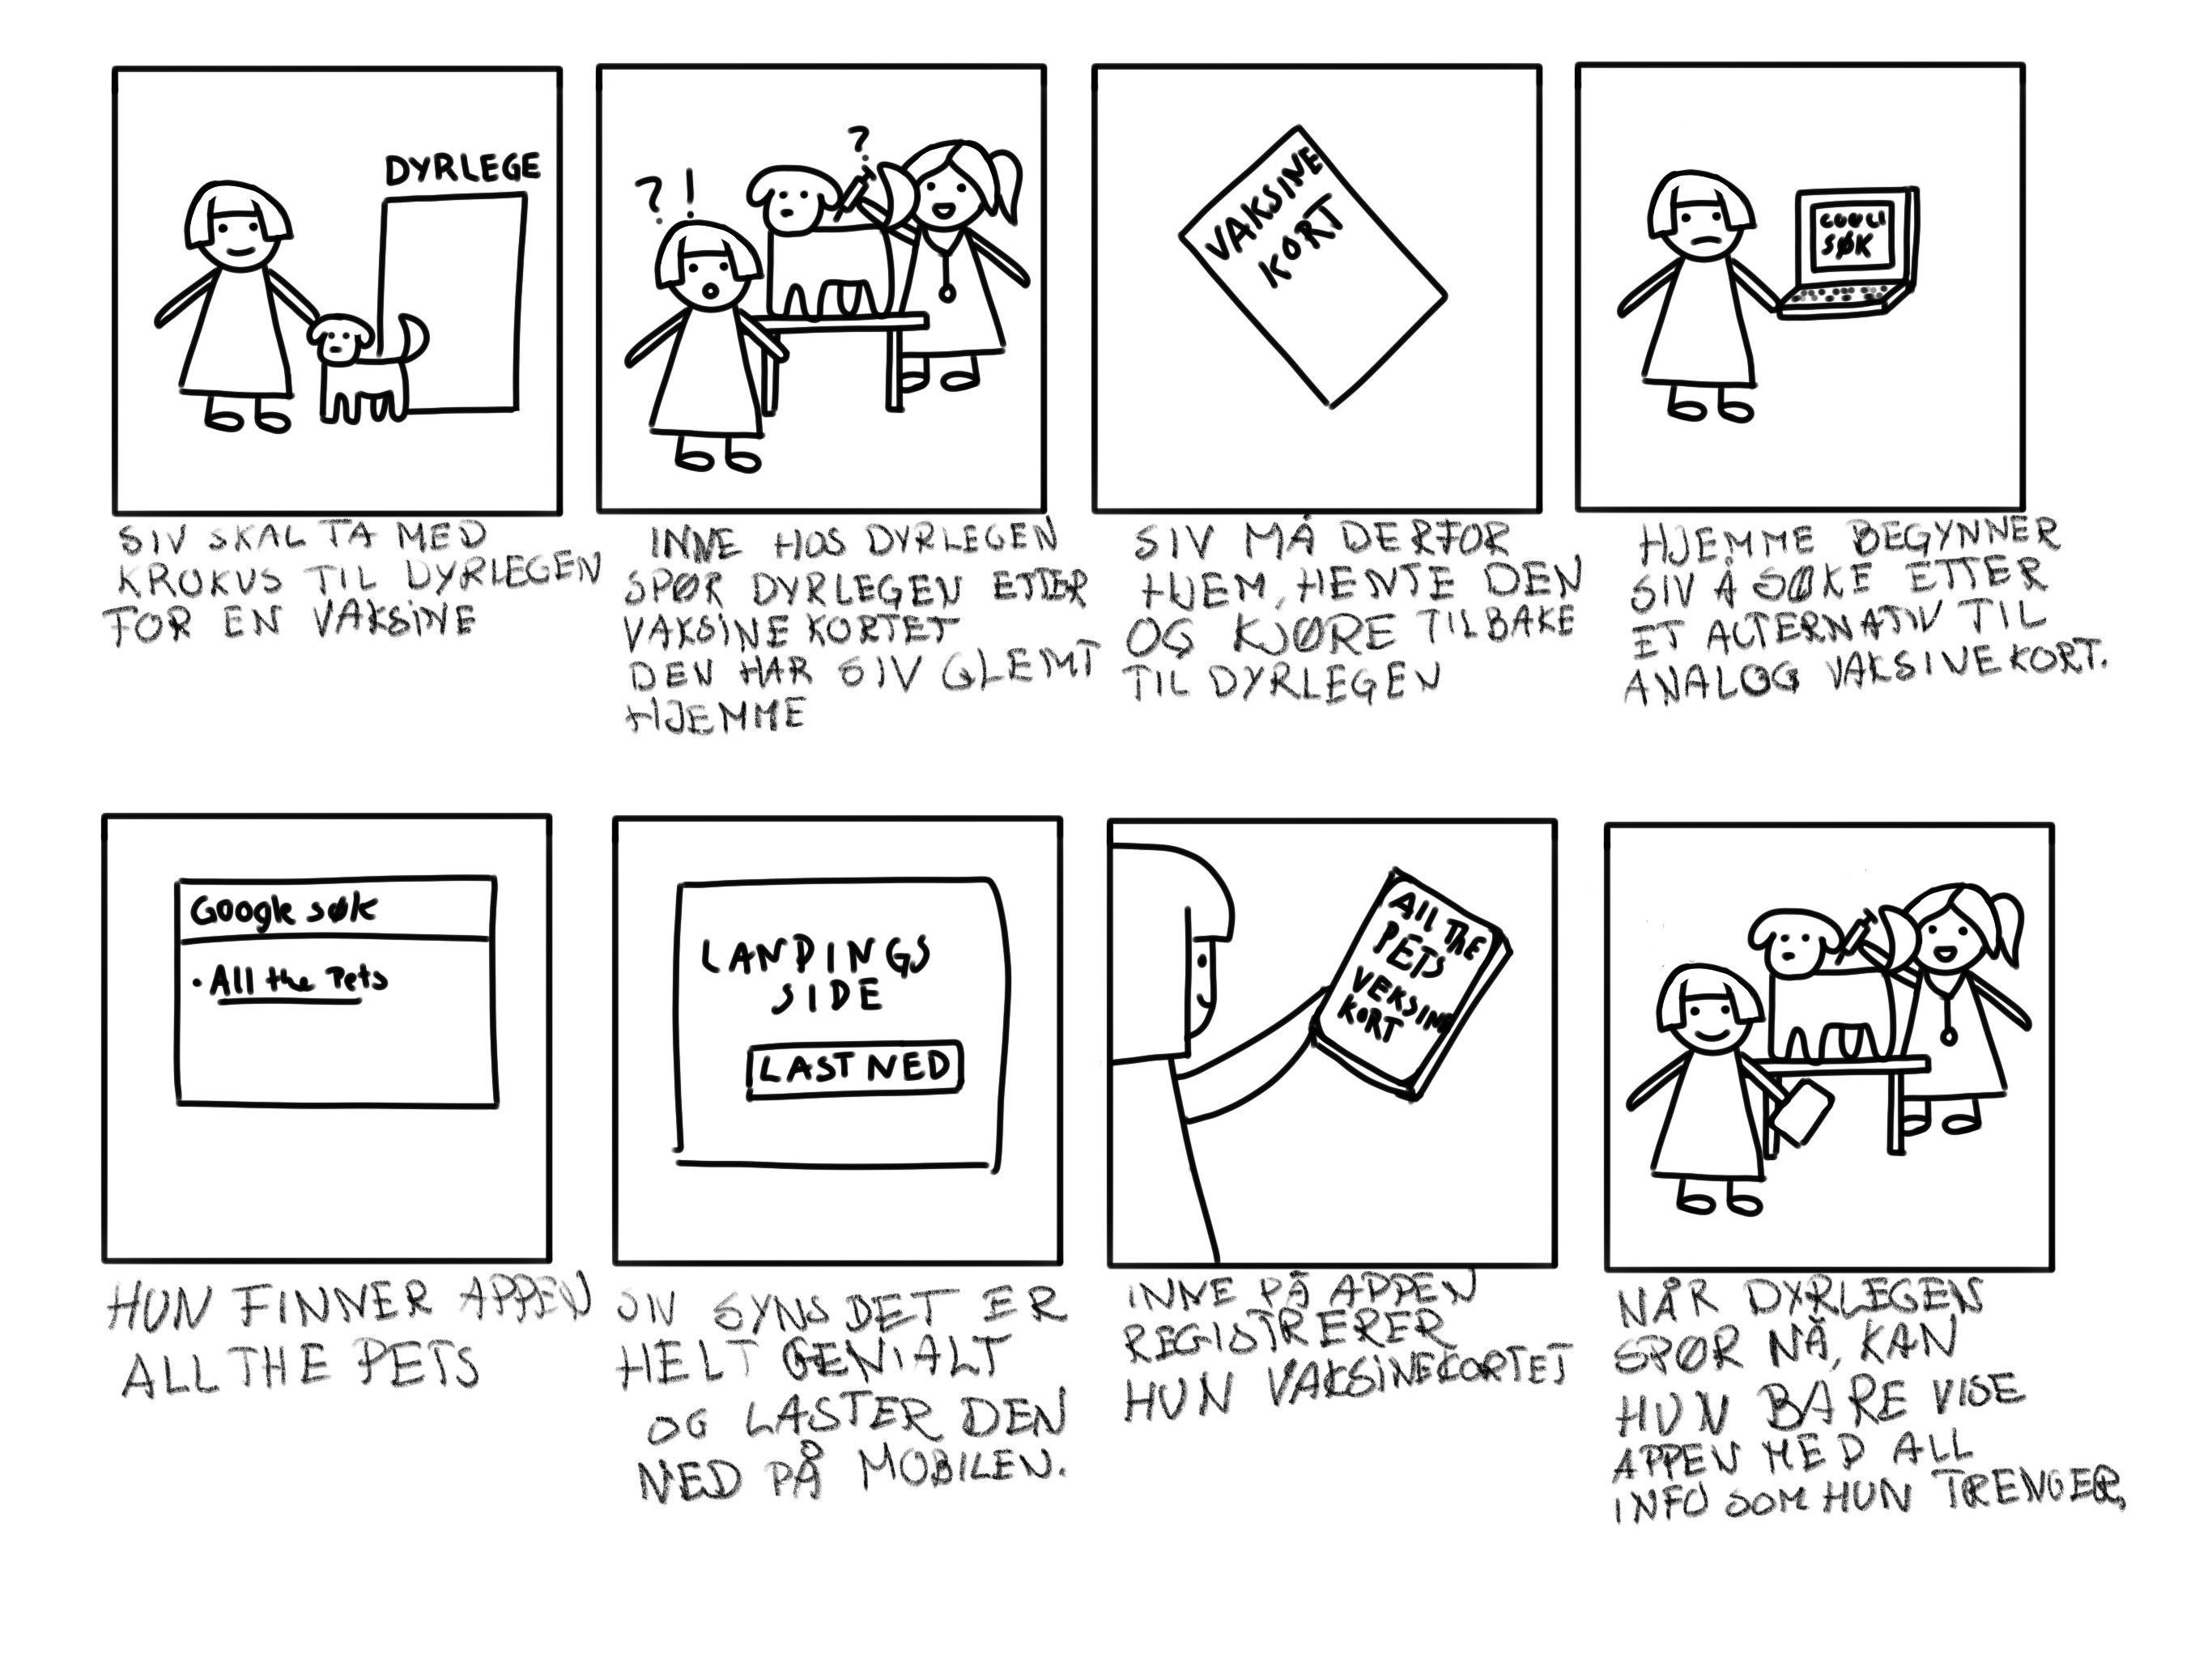 DYRLEGE
SIV SKAL TA MED
KROKUS TIL DYRLEGEN
FOR EN VAKSINE
?!
?
INNE HOS DYRLEGEN
SPØR DYRLEGEN ETTER
VAKSINEKORTET
DEN HAR SIV GLEMT
HJEMME
VAKSINE
KORT
SIV MÅ DERFOR
HJEM, HENTE DEN
OG KJØRE TILBAKE
TIL DYRLEGEN
SØK
HJEMME BEGYNNER
SIV Å SØKE ETTER
ET ALTERNATIV TIL
ANALOG VAKSINEKORT.
Google søk
• All the Pets
HUN FINNER APPEN
ALL THE PETS
LANDINGS
SIDE
LAST NED
SIV SYNS DET ER
HELT GENIALT
OG LASTER DEN
NED PÅ MOBILEN.
All THE
PETS
VEKSINE
KORT
INNE PÅ APPEN
REGISTRERER
HUN VAKSINEKORTET
NÅR DYRLEGEN
SPØR NÅ, KAN
HUN BARE VISE
APPEN MED ALL
INFO SOM HUN TRENGER,